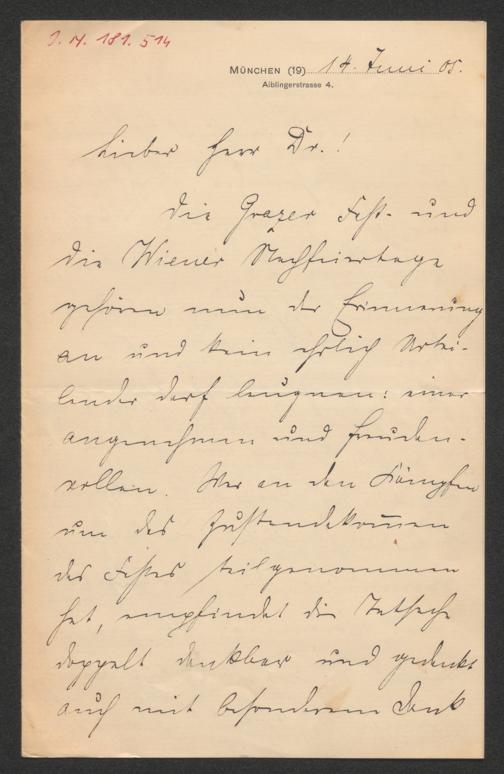 I. N. 181.514
MÜNCHEN (19) 14. Juni 05.
Aiblingerstrasse 4.
Lieber Herr Dr.!
Die Grazer Fest- und
die Wiener Nachfeiertage
gehören nun der Erinnerung
an und kein ehrlich Urtei-
lender darf leugnen: einer
angenehmen und freuden-
vollen. Wer an den Kämpfen
um das Zustandekom̅en
des Festes teilgenommen
hat, empfindet die Tatsache
doppelt dankbar und gedenkt
auch mit besonderem Dank